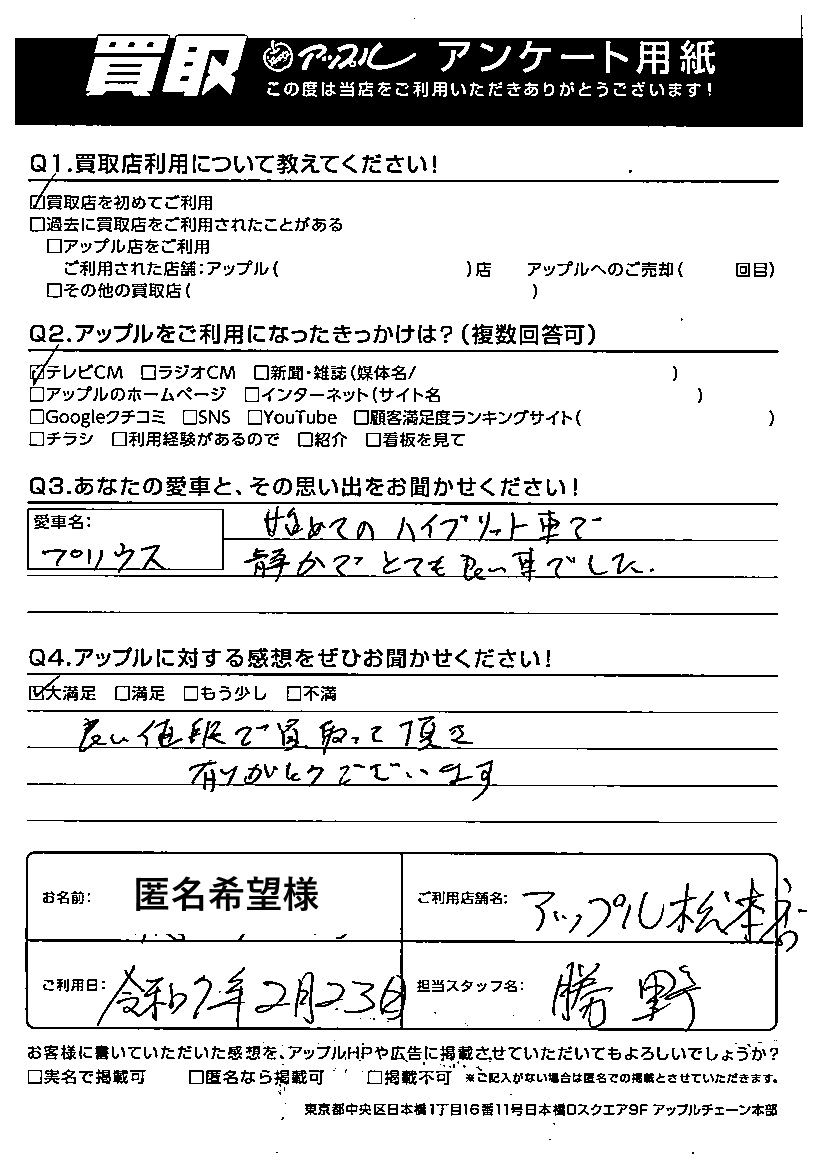 買取 アップル アンケート用紙
この度は当店をご利用いただきありがとうございます!
Q1.買取店利用について教えてください!
☑買取店を初めてご利用
□過去に買取店をご利用されたことがある
□アップル店をご利用
ご利用された店舗:アップル( )店 アップルへのご売却( 回目)
□その他の買取店( )
Q2.アップルをご利用になったきっかけは?(複数回答可)
☑テレビCM □ラジオCM □新聞・雑誌(媒体名/ )
□アップルのホームページ □インターネット(サイト名 )
□Googleクチコミ □SNS □YouTube □顧客満足度ランキングサイト( )
□チラシ □利用経験があるので □紹介 □看板を見て
Q3.あなたの愛車と、その思い出をお聞かせください!
愛車名:
プリウス
始めてのハイブリット車で
静かでとても良い車でした.
Q4.アップルに対する感想をぜひお聞かせください!
☑大満足 □満足 □もう少し □不満
良い値段で買取って頂き
有りがとうございます
お名前: 匿名希望様
ご利用店舗名: アップル松本店
ご利用日: 令和7年2月23日
担当スタッフ名: 勝野
お客様に書いていただいた感想を、アップルHPや広告に掲載させていただいてもよろしいでしょうか?
□実名で掲載可 □匿名なら掲載可 □掲載不可 ※ご記入がない場合は匿名での掲載とさせていただきます。
東京都中央区日本橋1丁目16番11号日本橋Dスクエア9F アップルチェーン本部